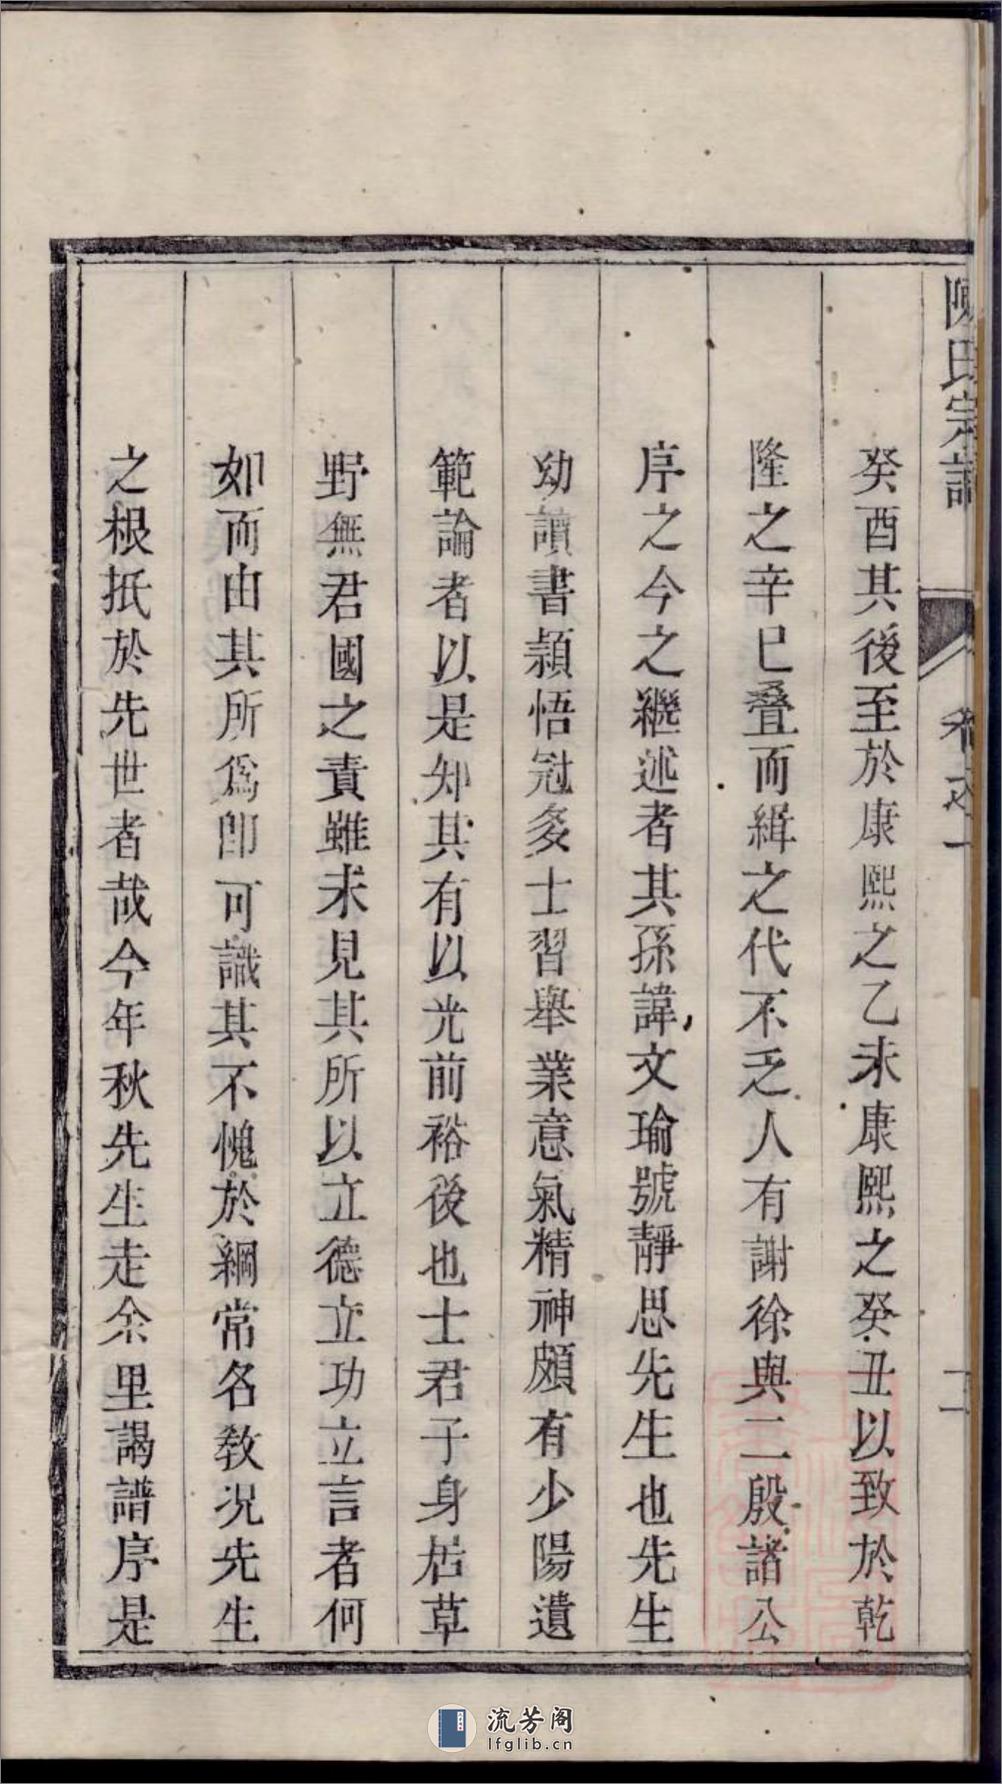 陳氏宗譜
卷之一
癸酉其後至於康熙之乙未康熙之癸丑以致於乾
隆之辛巳叠而緝之代不乏人有謝徐與二殷諸公
序之今之繼述者其孫諱文瑜號靜思先生也先生
幼讀書穎悟冠多士習舉業意氣精神頗有少陽遺
範論者以是知其有以光前裕後也士君子身居草
野無君國之責雖未見其所以立德立功立言者何
如而由其所爲卽可識其不愧於綱常名教况先生
之根抵於先世者哉今年秋先生走余里謁譜序是
流芳阁
lfglib.cn